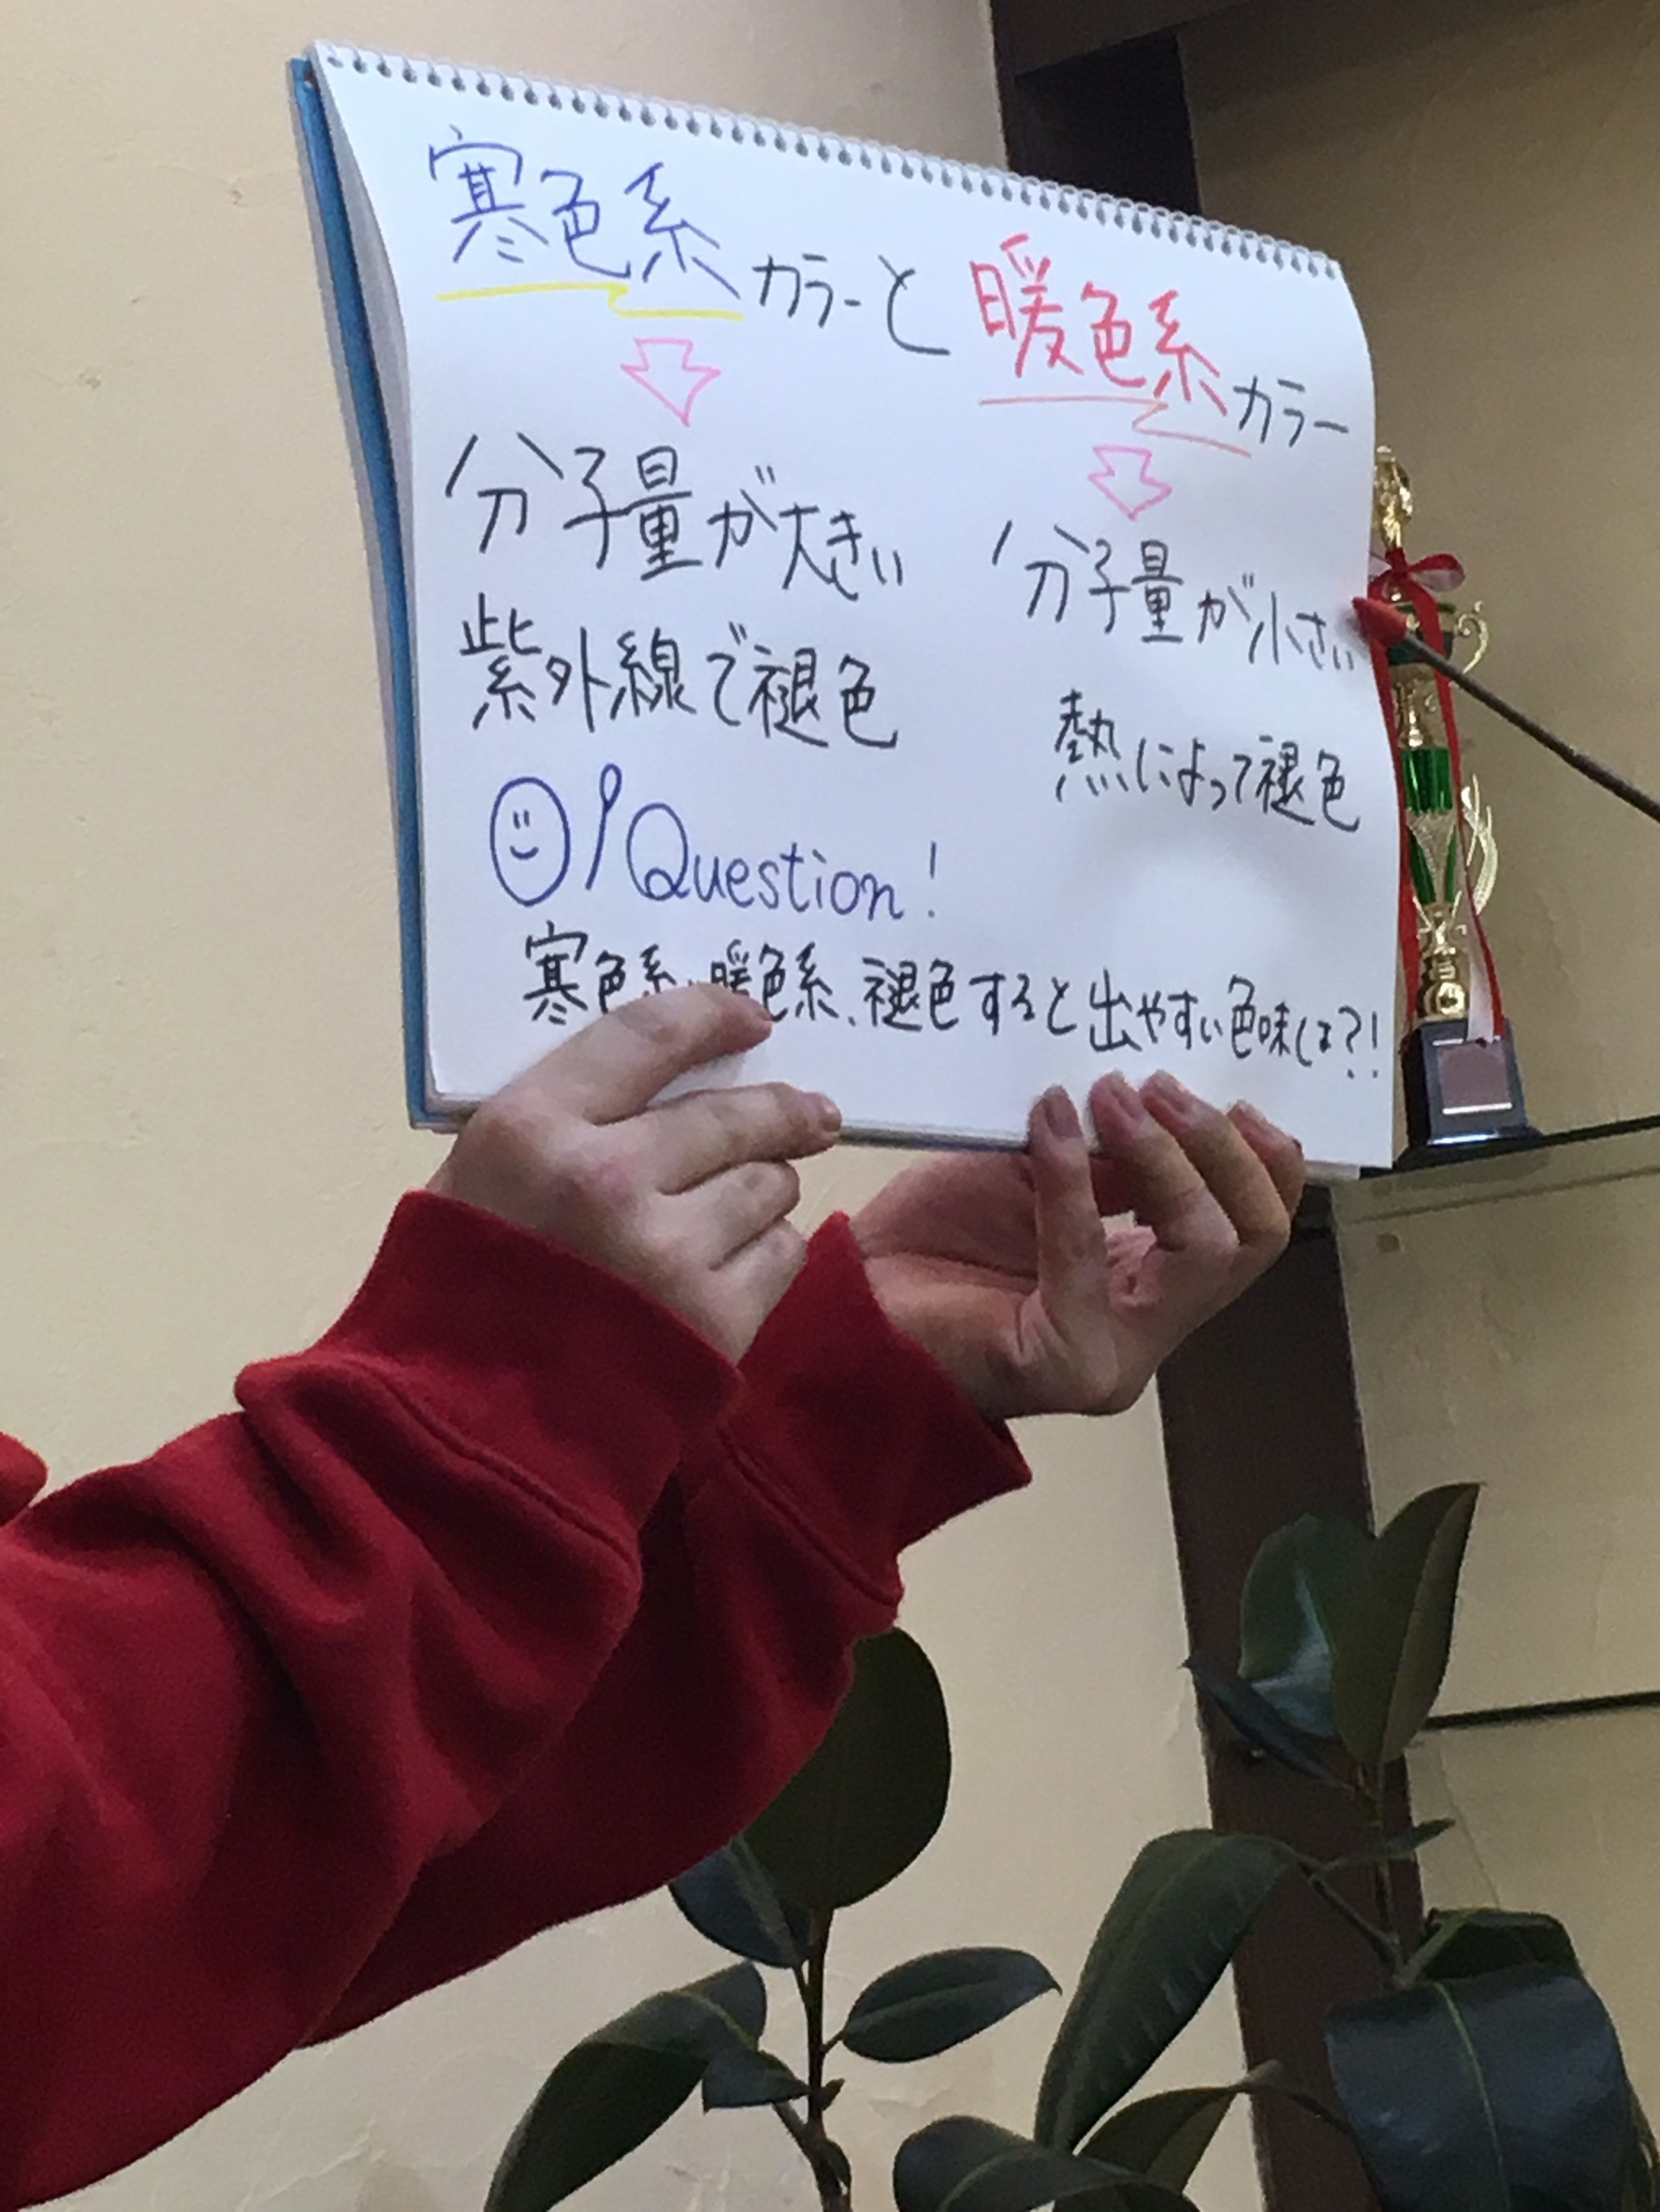 寒色系カラーと暖色系カラー
分子量が大きい
紫外線で褪色
分子量が小さい
熱によって褪色
Question!
寒色系、暖色系、褪色すると出やすい色味は?!